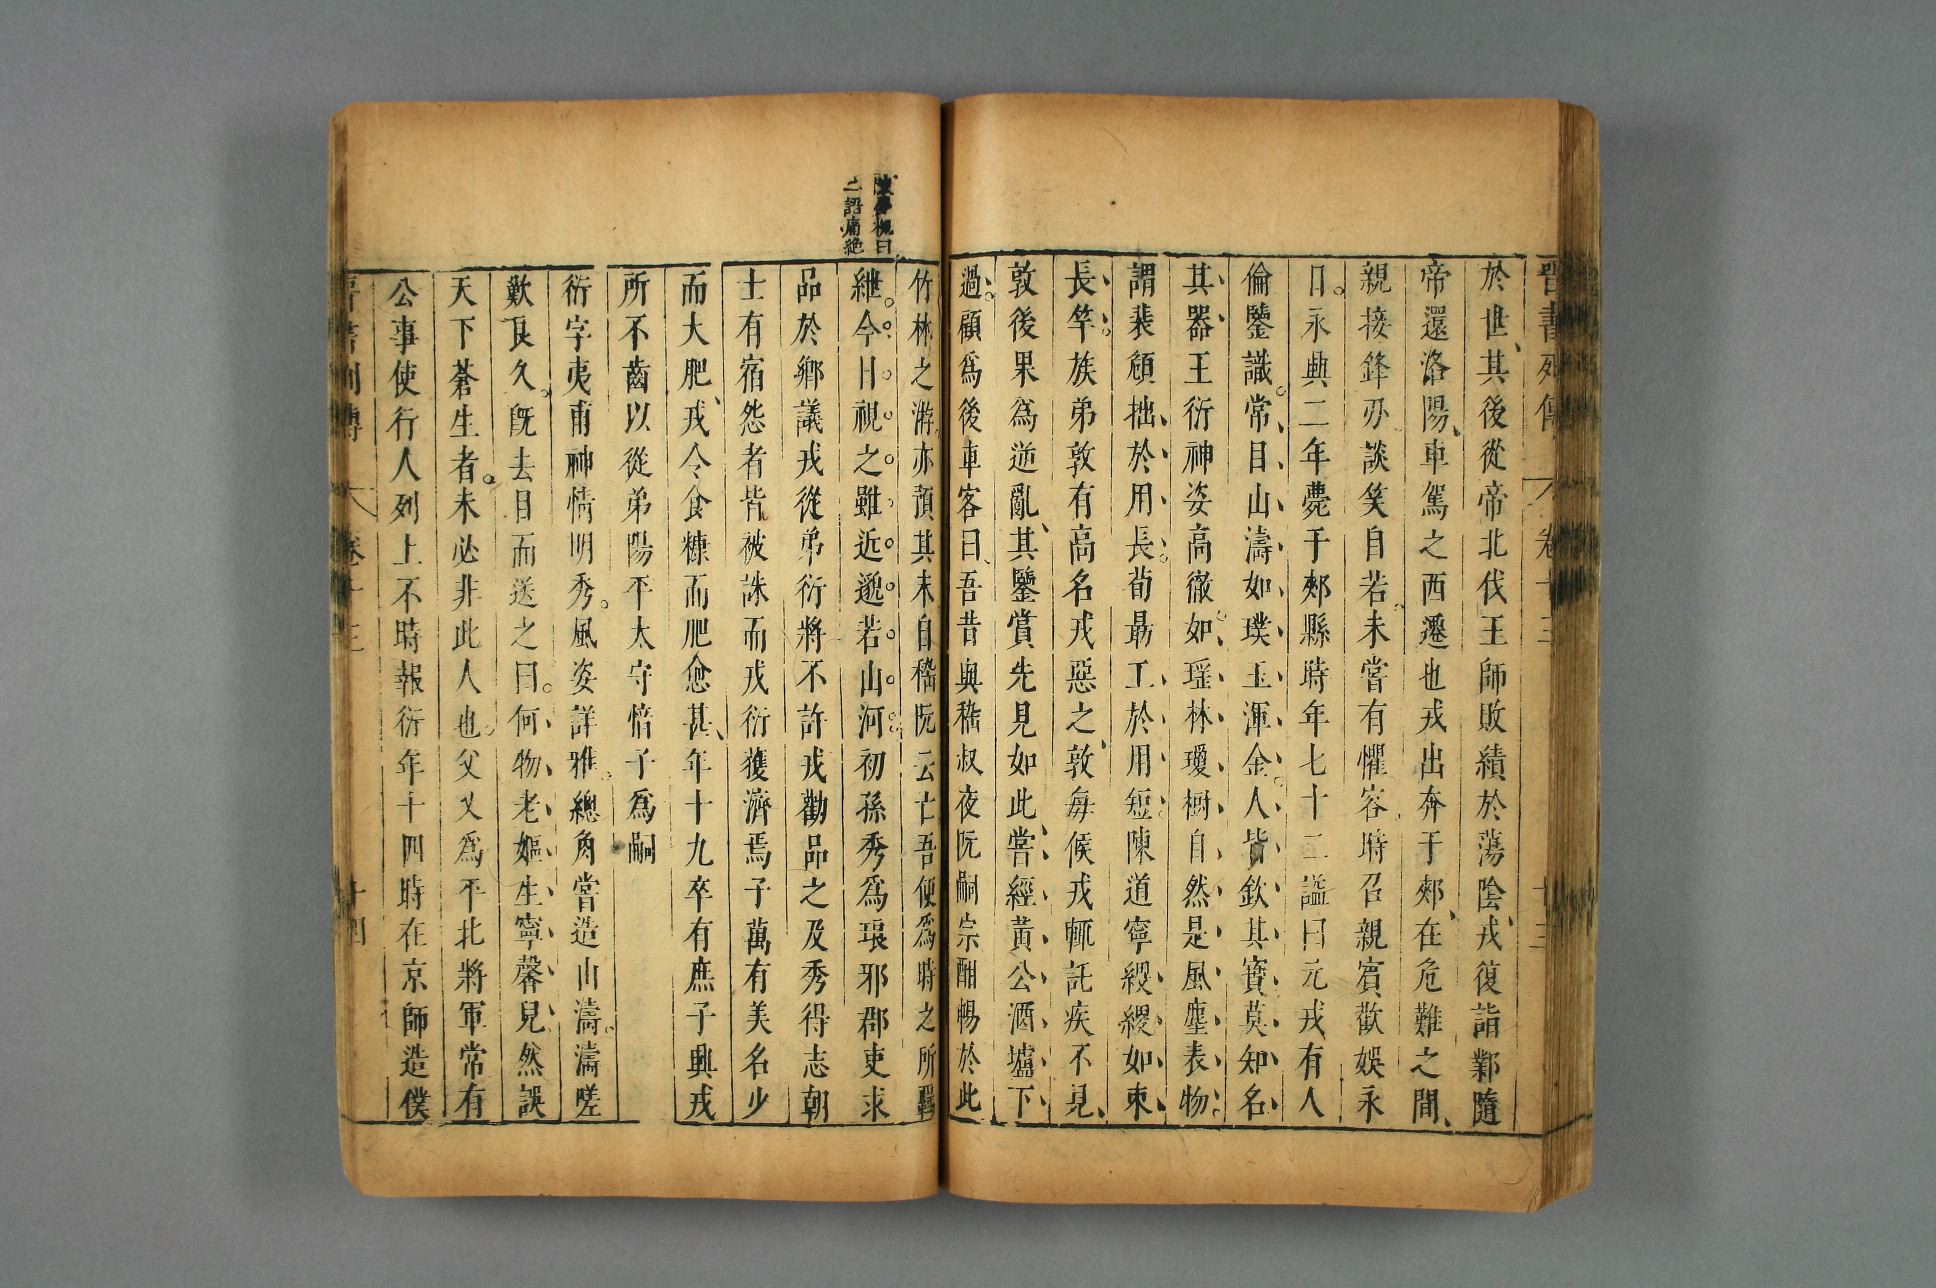 晉書列傳 卷十三 十三
於世其後從帝北伐王師敗績於蕩陰戎復詣鄴隨
帝還洛陽車駕之西遷也戎出奔于郟在危難之間
親接鋒刃談笑自若未嘗有懼容時召親賓歡娛永
日永興二年薨于郟縣時年七十二謚曰元戎有人
倫鑒識常目山濤如璞玉渾金人皆欽其寶莫知名
其器王衍神姿高徹如瑶林瓊樹自然是風塵表物
謂裴頠拙於用長荀勗工於用短陳道寧纓纓如束
長竿族弟敦有高名戎惡之敦每候戎輒託疾不見
敦後果為逆亂其鑒賞先見如此嘗經黃公酒壚下
過顧爲後車客曰吾昔與嵇叔夜阮嗣宗酣暢於此
二語痛絶
竹林之游亦預其末自嵇阮云亡吾便爲時之所羈
紲今日視之雖近邈若山河初孫秀爲琅邪郡吏求
品於鄉議戎從弟衍將不許戎勸品之及秀得志朝
士有宿怨者皆被誅而戎衍獲濟焉子萬有美名少
而大肥戎令食糠而肥愈甚年十九卒有庶子興戎
所不齒以從弟陽平太守愔子爲嗣
衍字夷甫神情明秀風姿詳雅總角嘗造山濤濤嗟
歎良久旣去目而送之曰何物老嫗生寧馨兒然誤
天下蒼生者未必非此人也父乂爲平北將軍常有
公事使行人列上不時報衍年十四時在京師造僕
晉書列傳 卷十三 十四